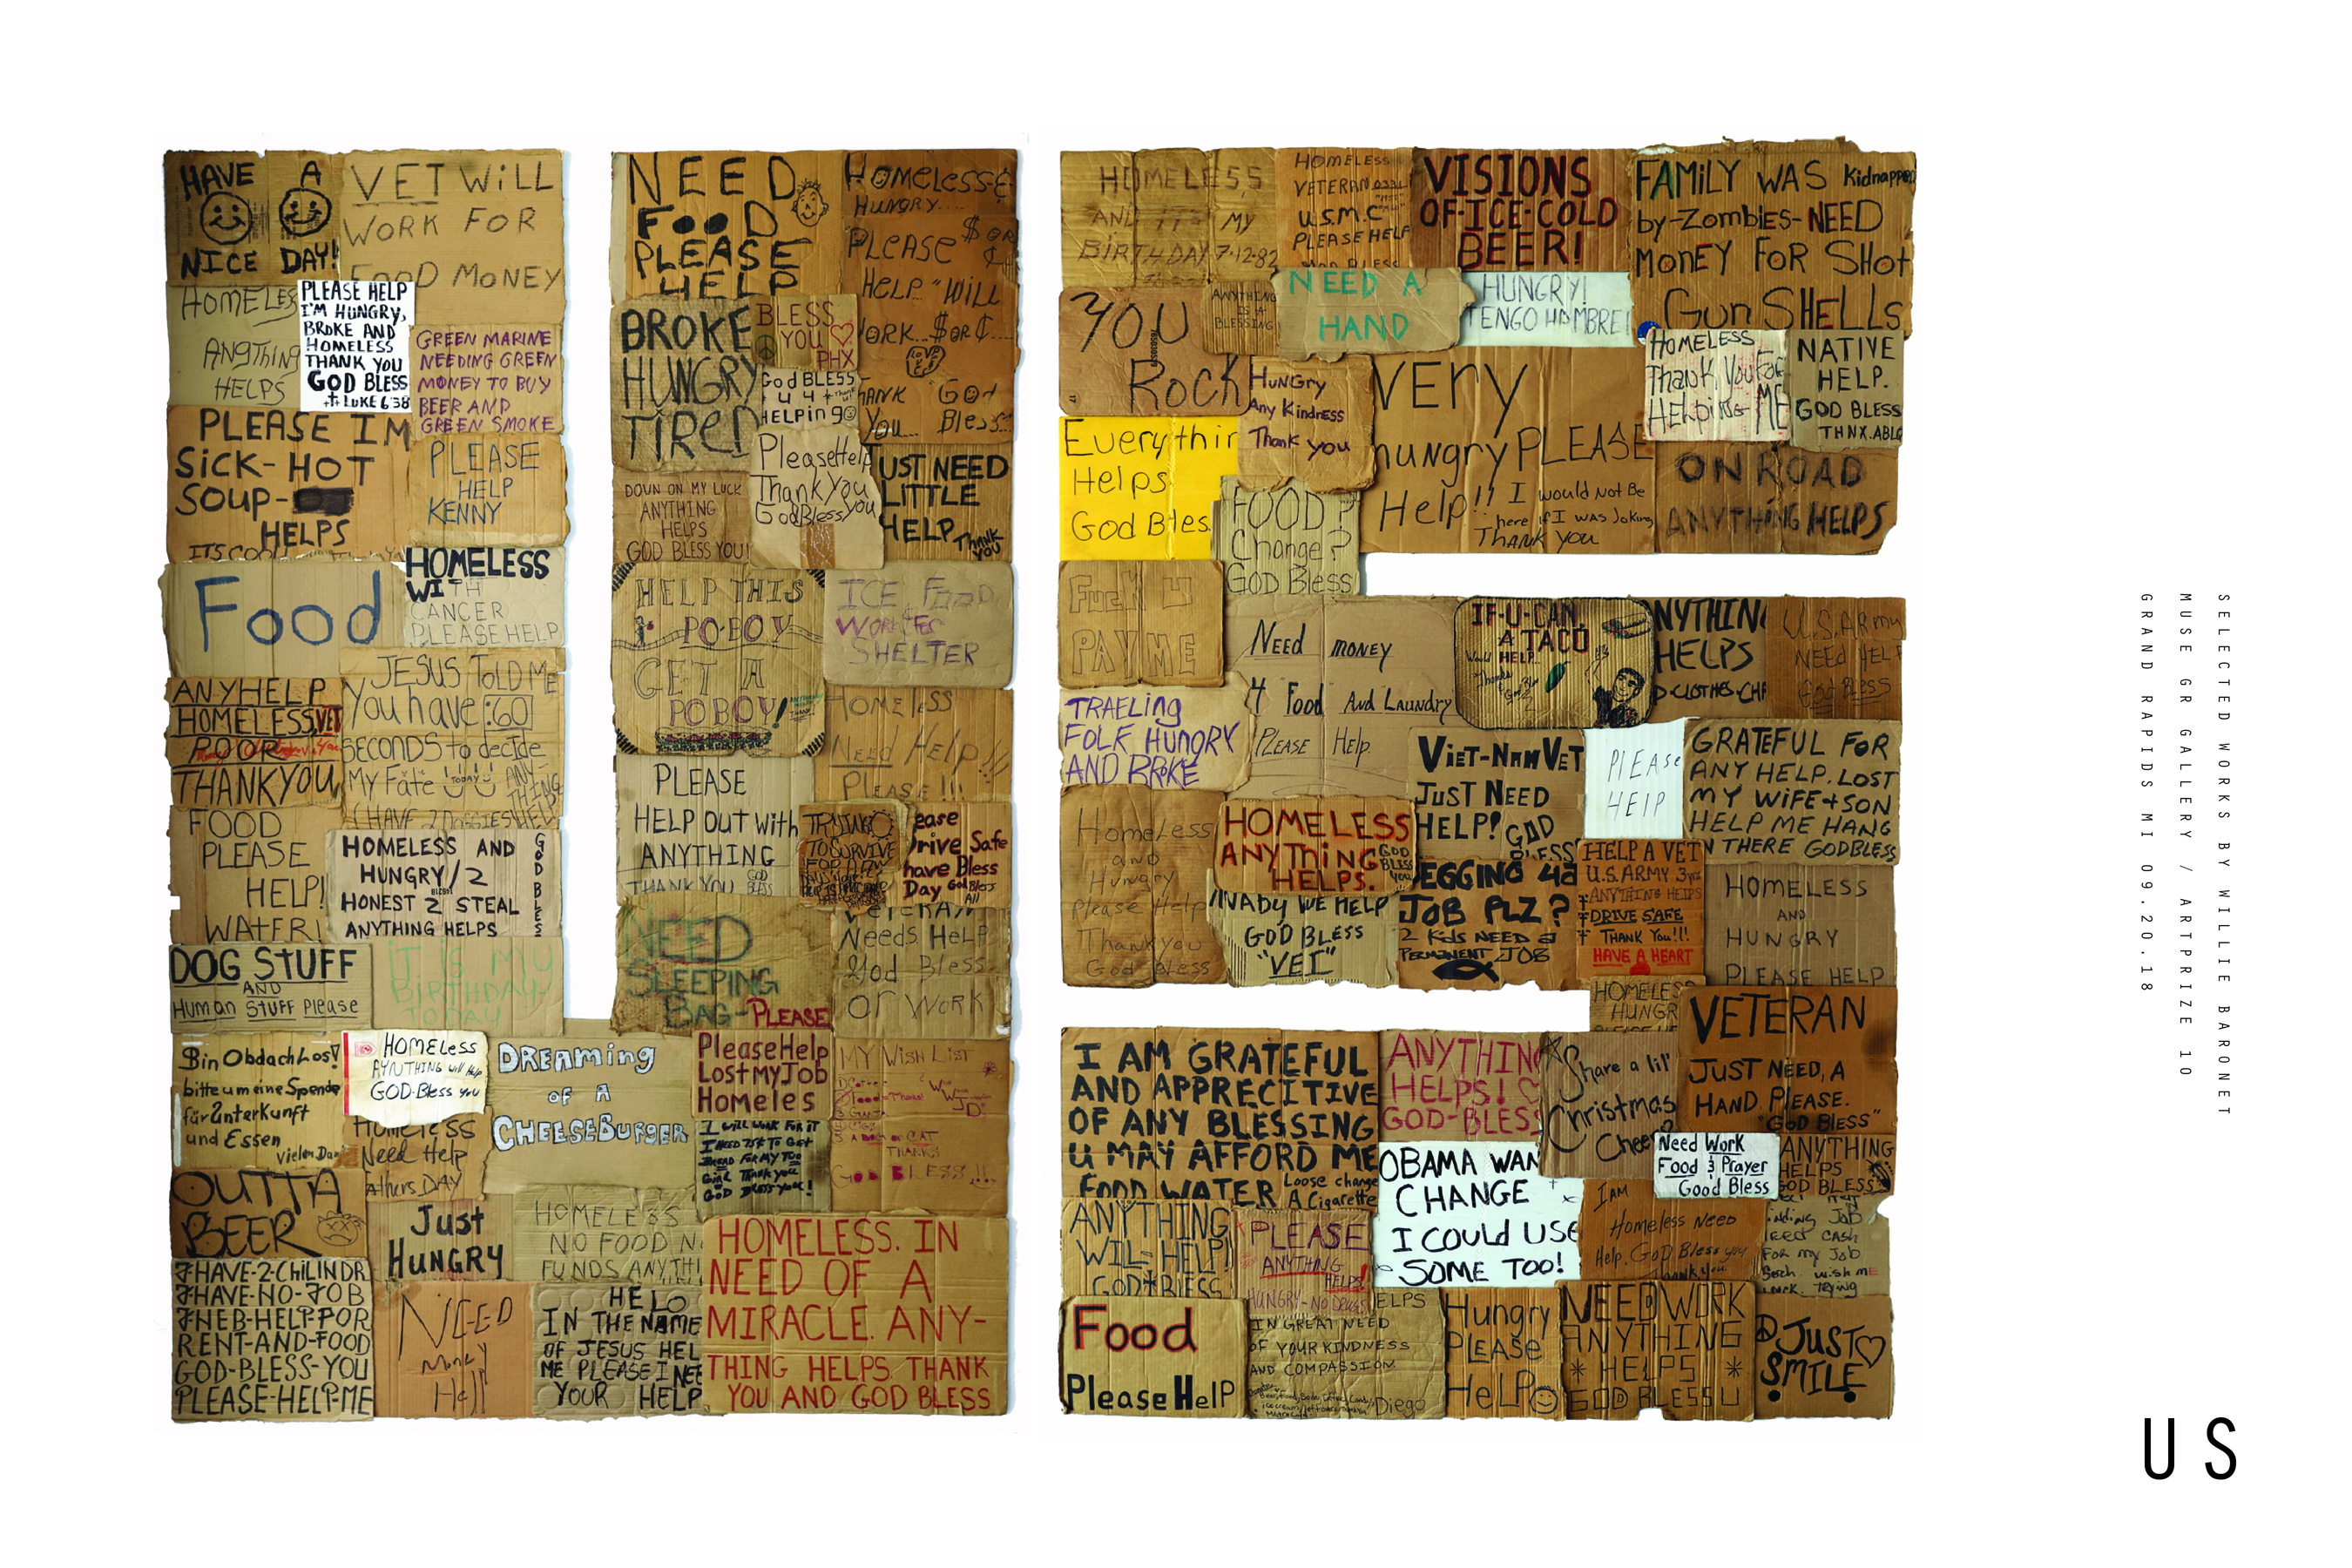 HAVE A
NICE DAY!
VET WiLL
WORK FOR
FOOD MONEY
HOMELES
ANGTHING
HELPS
PLEASE HELP
I'M HUNGRY,
BROKE AND
HOMELESS
THANK YOU
GOD BLESS
LUKE 6:38
GREEN MARINE
NEEDING GREEN
MONEY TO BUY
BEER AND
GREEN SMOKE
PLEASE IM
SICK-HOT
SOUP-
HELPS
PLEASE
HELP
KENNY
Food
HOMELESS
WITH
CANCER
PLEASE HELP
ANYHELP
HOMELESS,VET
POOR
THANKYOU
JESUS TOLD ME
You have :60
SECONDS to decide
My Fate
TODAY
ANY-
THING
HELP
I HAVE 2 DOGGIES
FOOD
PLEASE
HELP!
WATER!
HOMELESS AND
HUNGRY/2
HONEST 2 STEAL
ANYTHING HELPS
GOD BLES
DOG STUFF
AND
Human STUFF Please
iT iS MY
BIRTHDAY
TODAY
Bin ObdachLos!
bitte um eine Spende
für Unterkunft
und Essen
Vielen Dan
HOMELess
AYNTHING will Help
GOD-Bless you
HOMELESS
Need Help
athers DAY
DREAMING
OF A
CHEESEBURGER
PleaseHelp
LostMyJob
Homeles
MY WISH LIST
THANKS
GOD BLESS!!!
I WILL WORK FOR IT
GOD BLESS YOU!
OUTTA
BEER
Just
HUNGRY
HOMELESS
NO FOOD N
FUNDS ANYTHI
I-HAVE-2-CHILINDR
I-HAVE-NO-JOB
I-HEB-HELP-FOR
RENT-AND-FOOD
GOD-BLESS-YOU
PLEASE-HELP-ME
NEED
Money
HELO
IN THE NAME
OF JESUS HEL
ME PLEASE I NEE
YOUR HELP
HOMELESS. IN
NEED OF A
MIRACLE. ANY-
THING HELPS. THANK
YOU AND GOD BLESS
NEED
FOOD
PLEASE
HELP
HOMELESS &
HUNGRY....
PLEASE $ OR ¢
HELP "WILL
WORK...$OR¢...
God
You... Bless...
BROKE
HUNGRY
TIRED
BLESS
YOU
PHX
God BLESS
U 4
HELPing
PleaseHelp
ThankYou
GodBlessyou
UST NEED
LITTLE
HELP
THANK
YOU
DOUN ON MY LUCK
ANYTHING
HELPS
GOD BLESS YOU!
HELP THIS
PO-BOY
GET A
PO BOY!
ICE FOOD
SHELTER
HOMELESS
NEED HELP!!
PLEASE!!!
PLEASE
HELP OUT with
ANYTHING
THANK YOU GOD BLESS
TRYING
TO SURVIVE
ease
Drive Safe
have Bless
Day God Bless
All
NEED
SLEEPING
BAG-PLEASE
VETERAN
Needs HELP
God Bless
or WORK
HOMELESS,
AND IT'S MY
BIRTHDAY 7-12-82
HOMELESS
VETERAN
U.S.M.C
PLEASE HELP
VISIONS
OF-ICE-COLD
BEER!
FAMiLY WAS Kidnapped
by-Zombies-NEED
MONEY FOR SHOt
Gun SHELLS
YOU
Rock
ANYTHING
IS A
BLESSING
NEED A
HAND
HUNGRY!
TENGO HAMBRE!
HuNGry
Any Kindness
Thank you
VEry
huNgry PLEASE
Help!! I would Not Be
here if I was Joking
Thank you
HOMELESS
Thank You For
Helping ME
NATIVE
HELP.
GOD BLESS
THNX.ABLQ
Everythin
Helps
God Bles
FOOD?
Change?
GOD Bless
ON ROAD
ANYTHING HELPS
FucK U
PAY ME
Need money
4 Food And Laundry
Please Help.
IF-U-CAN
A TACO
Would HELP
NYTHING
HELPS
D CLOTHES CH
U.S.Army
NEED HELP
God Bless
TRAELING
FOLK HUNGRY
AND BROKE
ViET-NAM VET
JUST NEED
HELP! GOD
BLESS
PlEASe
HElP
GRATEFUL FOR
ANY HELP. LOST
MY WIFE + SON
HELP ME HANG
N THERE GODBLESS
Homeless
and
Hungry
Please Help
Thankyou
God Bless
HOMELESS
ANYTHING
HELPS.
GOD
BLESS
YOU
MAby WE HELP
GOD BLESS
"VET"
EGGING 4 a
JOB PLZ?
2 KidS NEED a
PERMANENT JOB
HELP A VET
U.S. ARMY 3yrs
ANYTHING HELPS
DRIVE SAFE
THANK You!!!
HAVE A HEART
HOMELESS
AND
HUNGRY
PLEASE HELP
HOMELESS
HUNGR
VETERAN
JUST NEED, A
HAND. PLEASE.
"GOD BLESS"
I AM GRATEFUL
AND APPRECITIVE
OF ANY BLESSING
U MAY AFFORD ME
FOOD WATER Loose change
A Cigarette
ANYTHING
HELPS!
GOD-BLESS
Share a lil'
Christmas
Cheer?
OBAMA WAN
CHANGE
I COULD USE
SOME TOO!
Need Work
Food & Prayer
Good Bless
ANYTHING
HELPS
GOD BLESS
ANYTHING
WIL-HELP!
GOD BLESS
PLEASE
ANYTHING
HELPS!
HUNGRY-NO DRUGS
I AM
Homeless Need
Help. GOD Bless you
Thank you
inding Job
eed CASH
For my Job
Serch. wish ME
Luck. Trying
Food
Please HelP
ELPS
IN GREAT NEED
OF YOUR KINDNESS
AND COMPASSION
Diego
Hungry
PLEASe
HelP
NEED WORK
ANYTHING
* HELPS *
GOD BLESS U
JUST
SMILE
SELECTED WORKS BY WILLIE BARONET
MUSE GR GALLERY / ARTPRIZE 10
GRAND RAPIDS MI 09.20.18
US